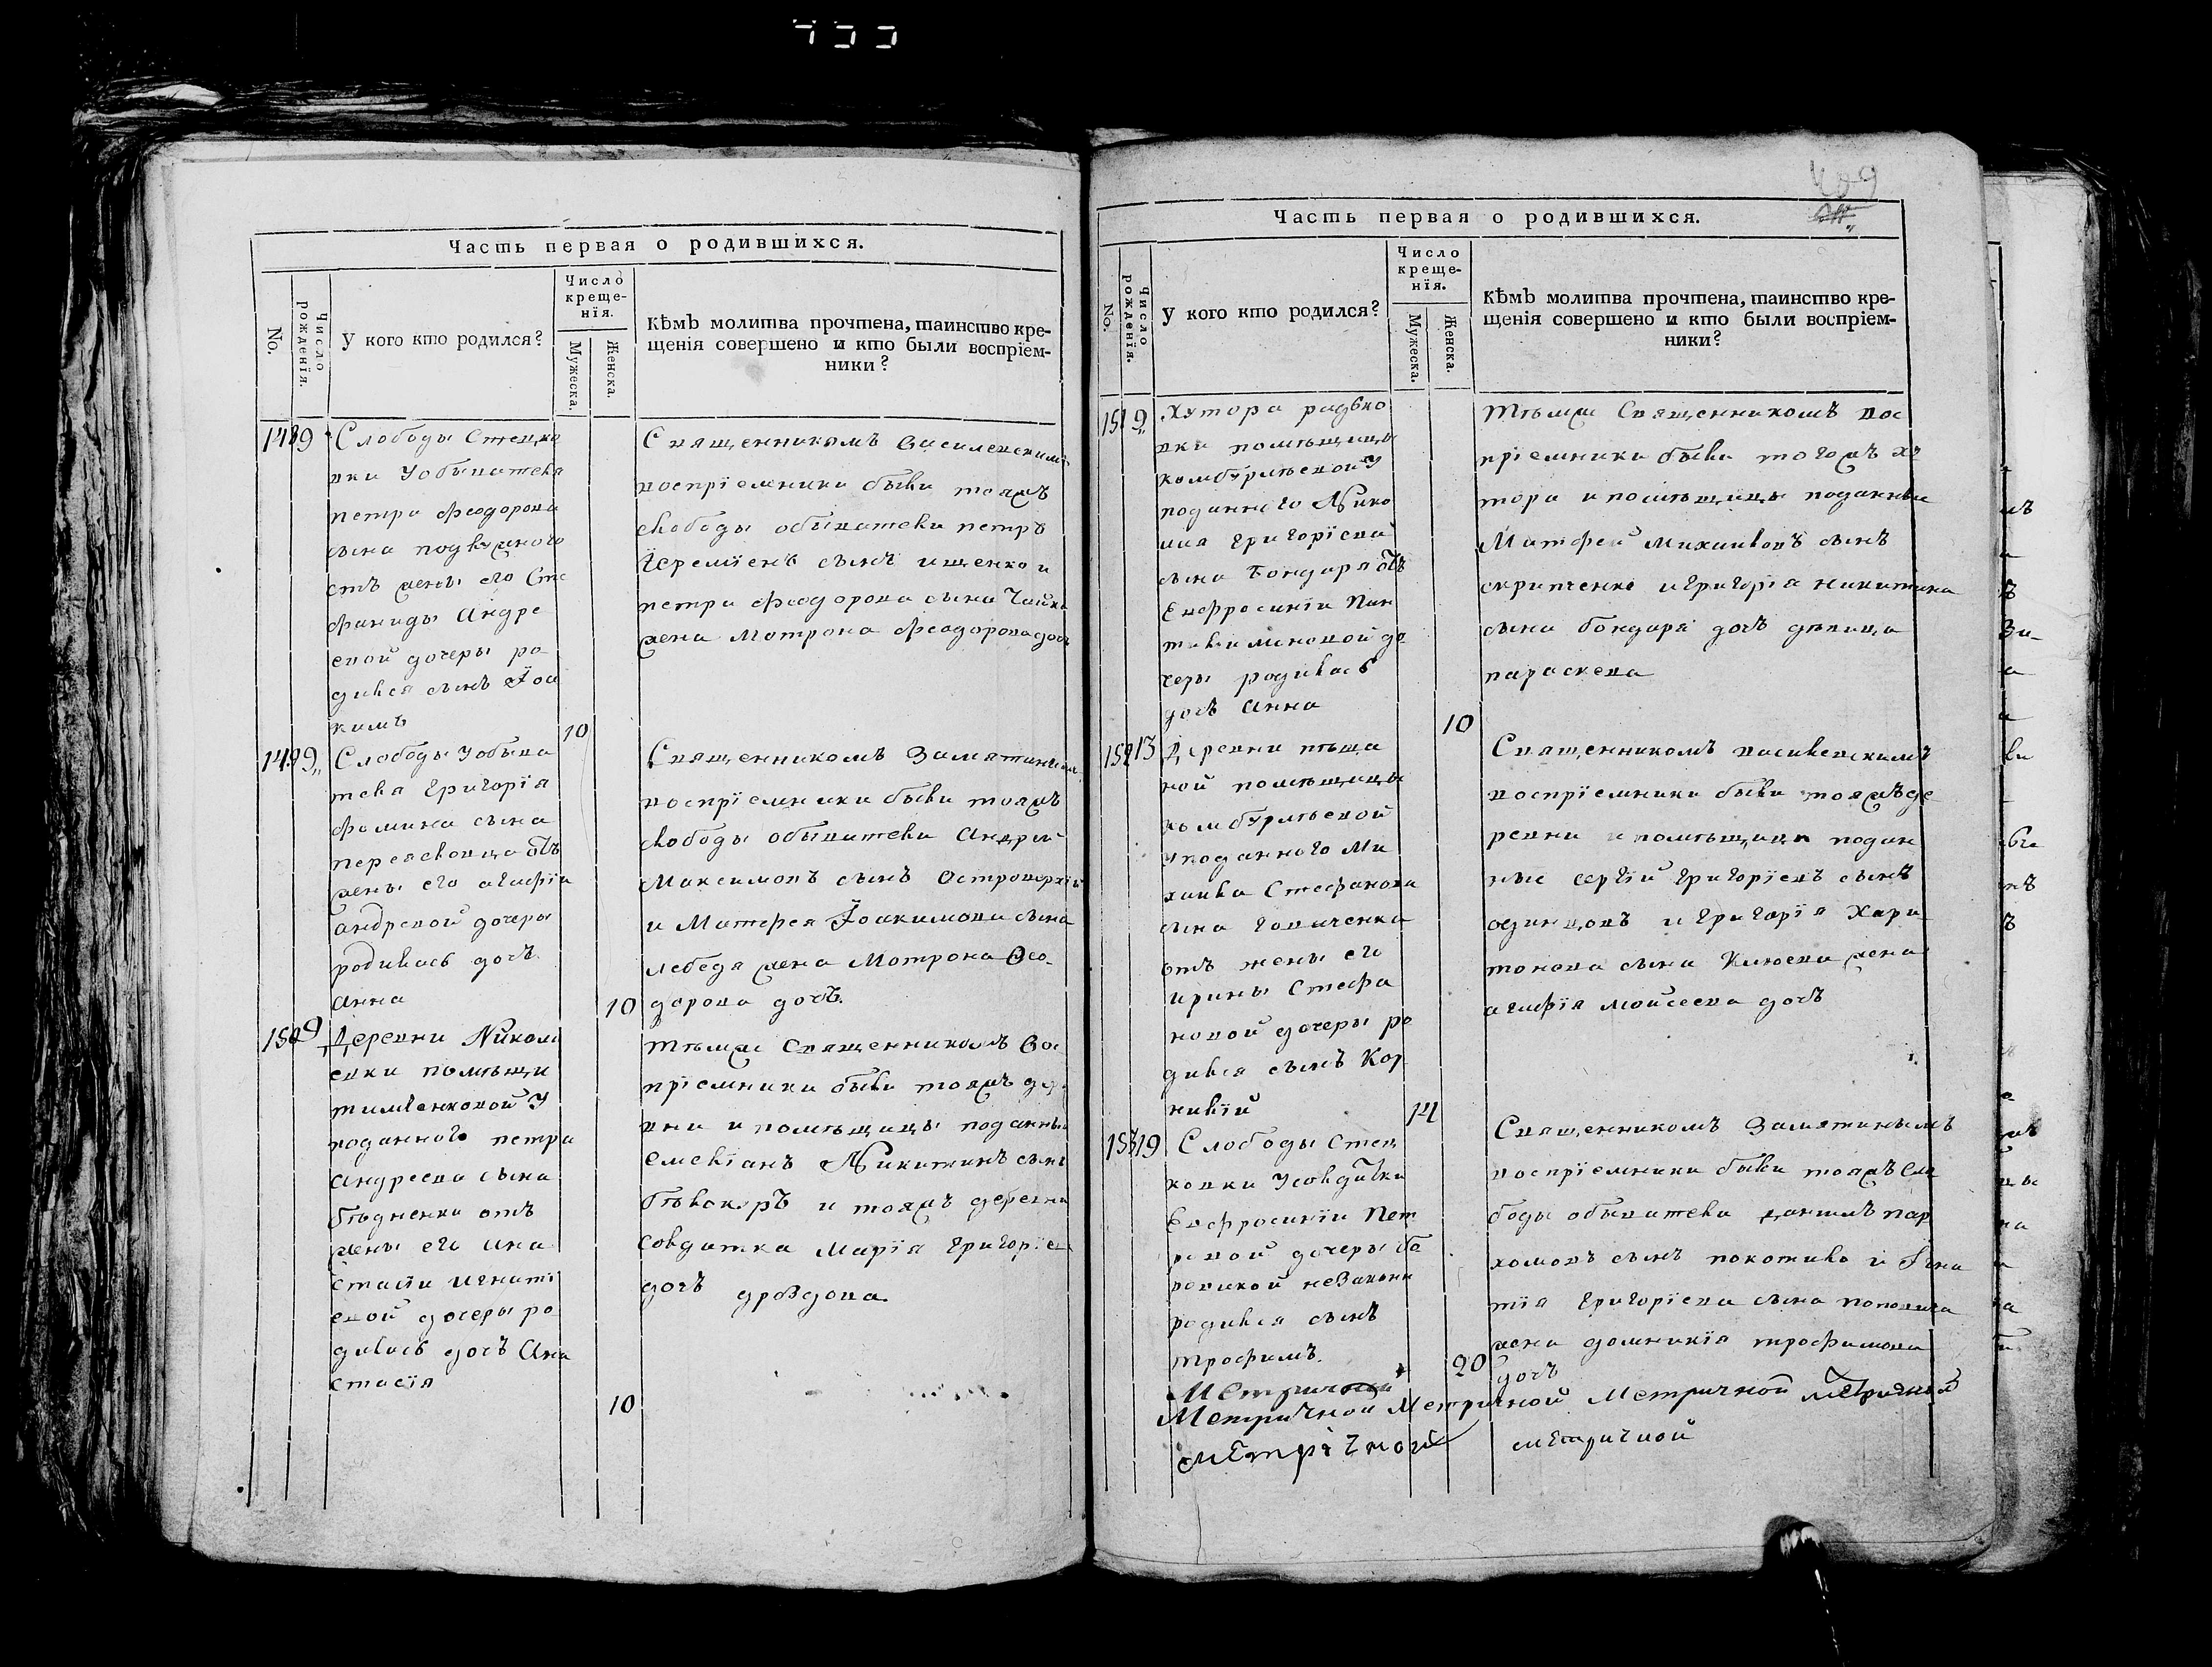 409
Часть первая о родившихся.
No.
Число рожденїя.
У кого кто родился?
Число креще-
нїя.
Мужеска.
Женска.
Кѣмъ молитва прочтена, таинство кре-
щенія совершено и кто были воспріем-
ники?
148 9 Слободы Стецко
вки У обывателя
петра феодорова
сына подкущного
отъ жены его Сте
фаниды Андре
евой дочеры ро
дился сынъ Їоа
кимъ
10
Священникомъ Василевскимъ
воспріемники были тояжъ
слободы обыватели петръ
Їеремїевъ сынъ ищенко и
петра феодорова сына Чайки
жена Мотрона феодорова дочь
149 9 Слободы У обыва
теля Григорїя
фомина сына
переяславца отъ
жены его агафїи
андревой дочеры
родилась дочь
анна
10
Священникомъ Замятинымъ
воспрїемники были тояжъ
слободы обыватели Андрей
Максимовъ сынъ Островерхїй
и Матфея Їоакимова сына
лебедя жена Мотрона Ѳео-
дорова дочь.
150 9 Деревни Никола
евки помѣщи
тимченковой У
поданного петра
Андреева сына
бѣдненка отъ
жены его Ана
стасїи игнатї
евой дочеры ро
дилась дочь Ана
стасїя
10
тѣмже Священникомъ Вос
прїемники были тояжъ дере
вни и помѣщицы поданныи
емелїанъ Никитинъ сынъ
бѣлокоръ и тояжъ деревни
солдатка Марїя Григорїева
дочь дроздова
Часть первая о родившихся.
No.
Число рожденїя.
У кого кто родился?
Число
креще-
нїя.
Мужеска.
Женска.
Кѣмъ молитва прочтена, таинство кре-
щенія совершено и кто были воспріем-
ники?
151 9 Хутора радько
вки помѣщицы
комбурлѣевой У
поданного Нико
лая Григорїева
сына Бондаря отъ
Евфросинїи Пан
телиимоновой до
черы родилась
дочь Анна
10
тѣмже Священникомъ вос
прїемники были тогожъ ху
тора и помѣщицы поданныи
Матфей михаиловъ сынъ
скрипченко и григорїя никитина
сына бондаря дочь дѣвица
параскева
152 13 Деревни пѣща
ной помѣщицы
комбурлѣевой
У поданного Ми
хаила Стефанова
сына Говиченка
отъ жены его
ирины Стефа
новой дочеры ро
дился сынъ Кор
нилїй
14
Священникомъ василевскимъ
воспрїемники были тояжъ де
ревни и помѣщицы подан
ные сергїй григорїевъ сынъ
одинцовъ и григорїя Хари
тонова сына Клюева жена
агафїя мойсеева дочь
153 19 Слободы Стец
ковки У солдатки
Евфросинїи Пет
ровой дочеры бо
ровикой незаконно
родился сынъ
трофимъ.
20
Священникомъ Замятинымъ
воспрїемники были тояжъ сло
боды обыватели данилъ пар
хомовъ сынъ покотило и Игна
тїя григорїева сына поповича
жена домникїя трофимова
дочь
Метричной
Метричной Метричной Метричной метричной
метрічной метричной